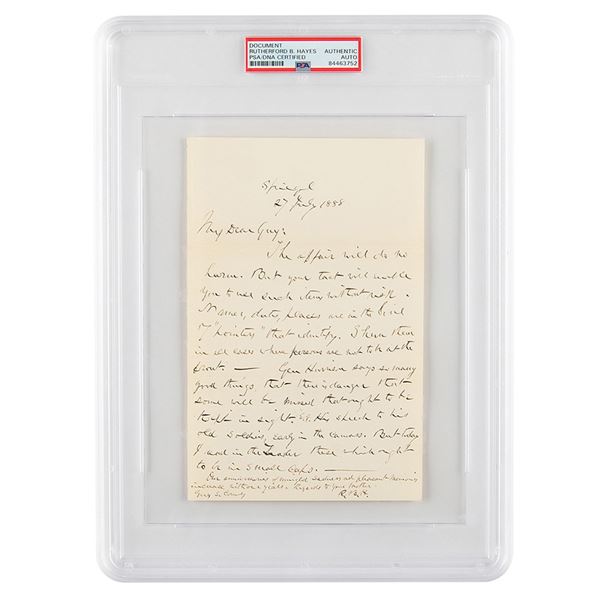 DOCUMENT
RUTHERFORD B. HAYES AUTHENTIC
AUTO
PSA/DNA CERTIFIED PSA 84463752
Spiegel
27 July 1888
My Dear Guy:
The affair will do no
harm. But your tact will enable
you to use such items without risk.
Names, dates, places are in the line
of "pointers" that identify. I shun them
in all cases where persons are not to be at the
front. — Gen Harrison says so many
good things that there is danger that
some will be missed that ought to be
kept in sight. His speech to his
old soldiers, early in the canvass. But today
I read in the Leader these which ought
to be in small caps. —
Our anniversaries of mingled sadness and pleasant memories
increase with our years. Regards to your mother.
R. B. H.